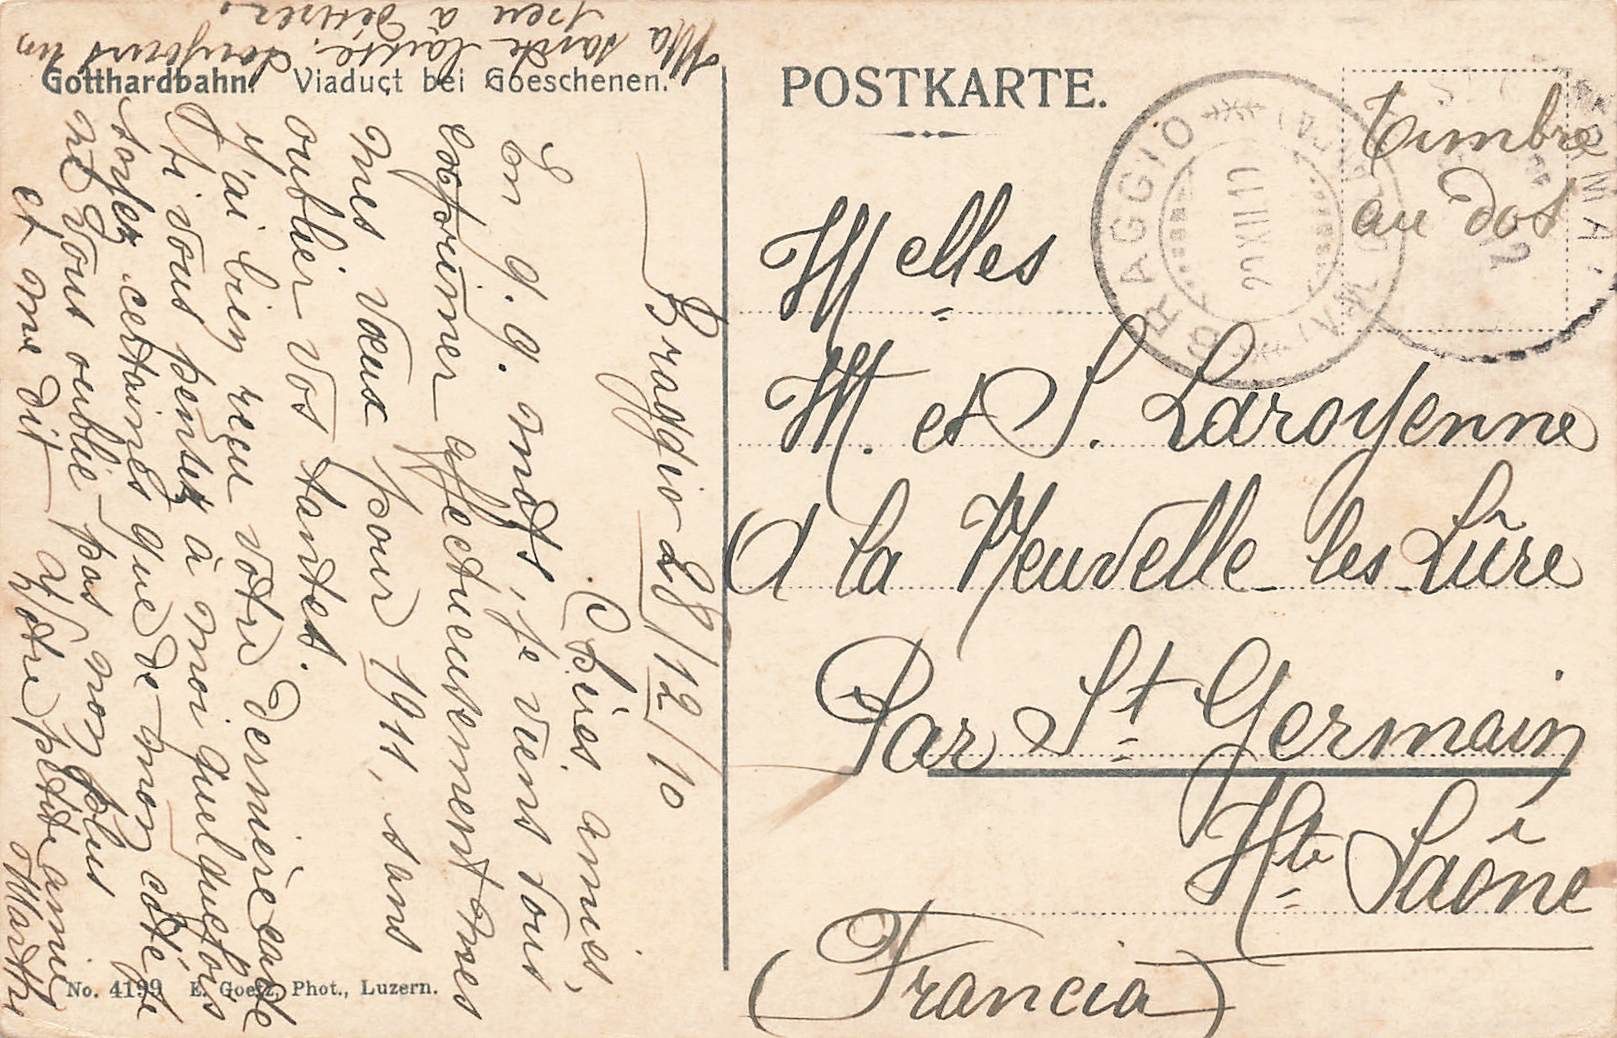 Gotthardbahn. Viaduct bei Goeschenen.
POSTKARTE.
Timbre
au dos
BRAGGIO
Melles
M. et S. Laroyenne
A la Neuvelle les Lûre
Par St Germain
Hte Saône
(Francia)
Braggio 28/12/10
Chères amies,
En q. q. mots, je viens vous
exprimer affectueusement mes
mes vœux pour 1911, sans
oublier vos tantes.
J'ai bien reçu votre dernière carte
Si vous pensez à moi quelquefois
soyez certaines que de mon côté, je
ne vous oublie pas non plus
et me dit votre petite amie
Marthe
Ma santé laisse toujours un
peu à désirer.
No. 4199 E. Goetz, Phot., Luzern.